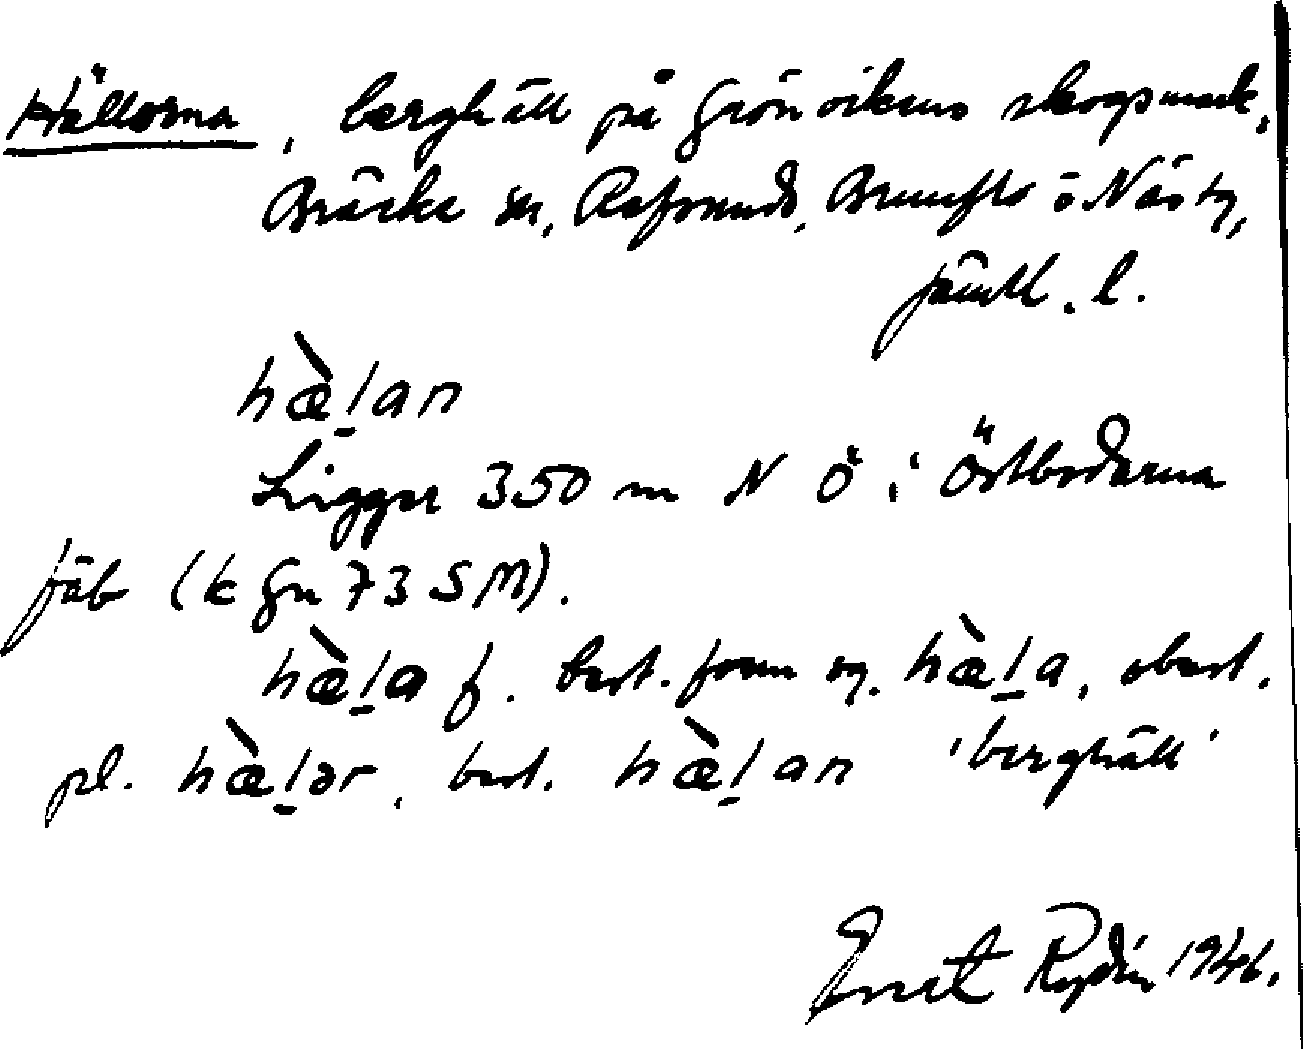 Hällorna, berghäll på Grönvikens skogsmark,
Bräcke sn, Refsunds, Brunflo o Näs tg,
Jämtl. l.
hæ̀l̠an
Ligger 350 m N Ö i Östbodarna
fäb (k Gn 73 SM).
hæ̀l̠a f. best. form sg. hæ̀l̠a, obest.
pl. hæ̀l̠ər, best. hæ̀l̠an 'berghäll'
Ernst Rydén 1946.